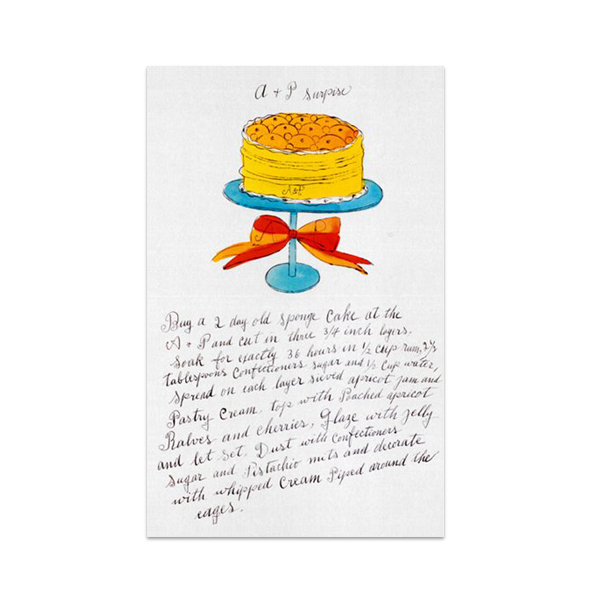 A + P Surprise
A&P
Buy a 2 day old sponge Cake at the
A + P and cut in three 3/4 inch layers.
Soak for exactly 36 hours in 1/2 cup rum, 2 1/2
Tablespoons Confectioners sugar and 1/2 Cup water,
Spread on each layer sieved apricot jam and
Pastry Cream. top with Poached apricot
Halves and cherries, Glaze with jelly
and let set. Dust with Confectioners
sugar and Pistachio nuts and decorate
with whipped Cream Piped around the
edges.